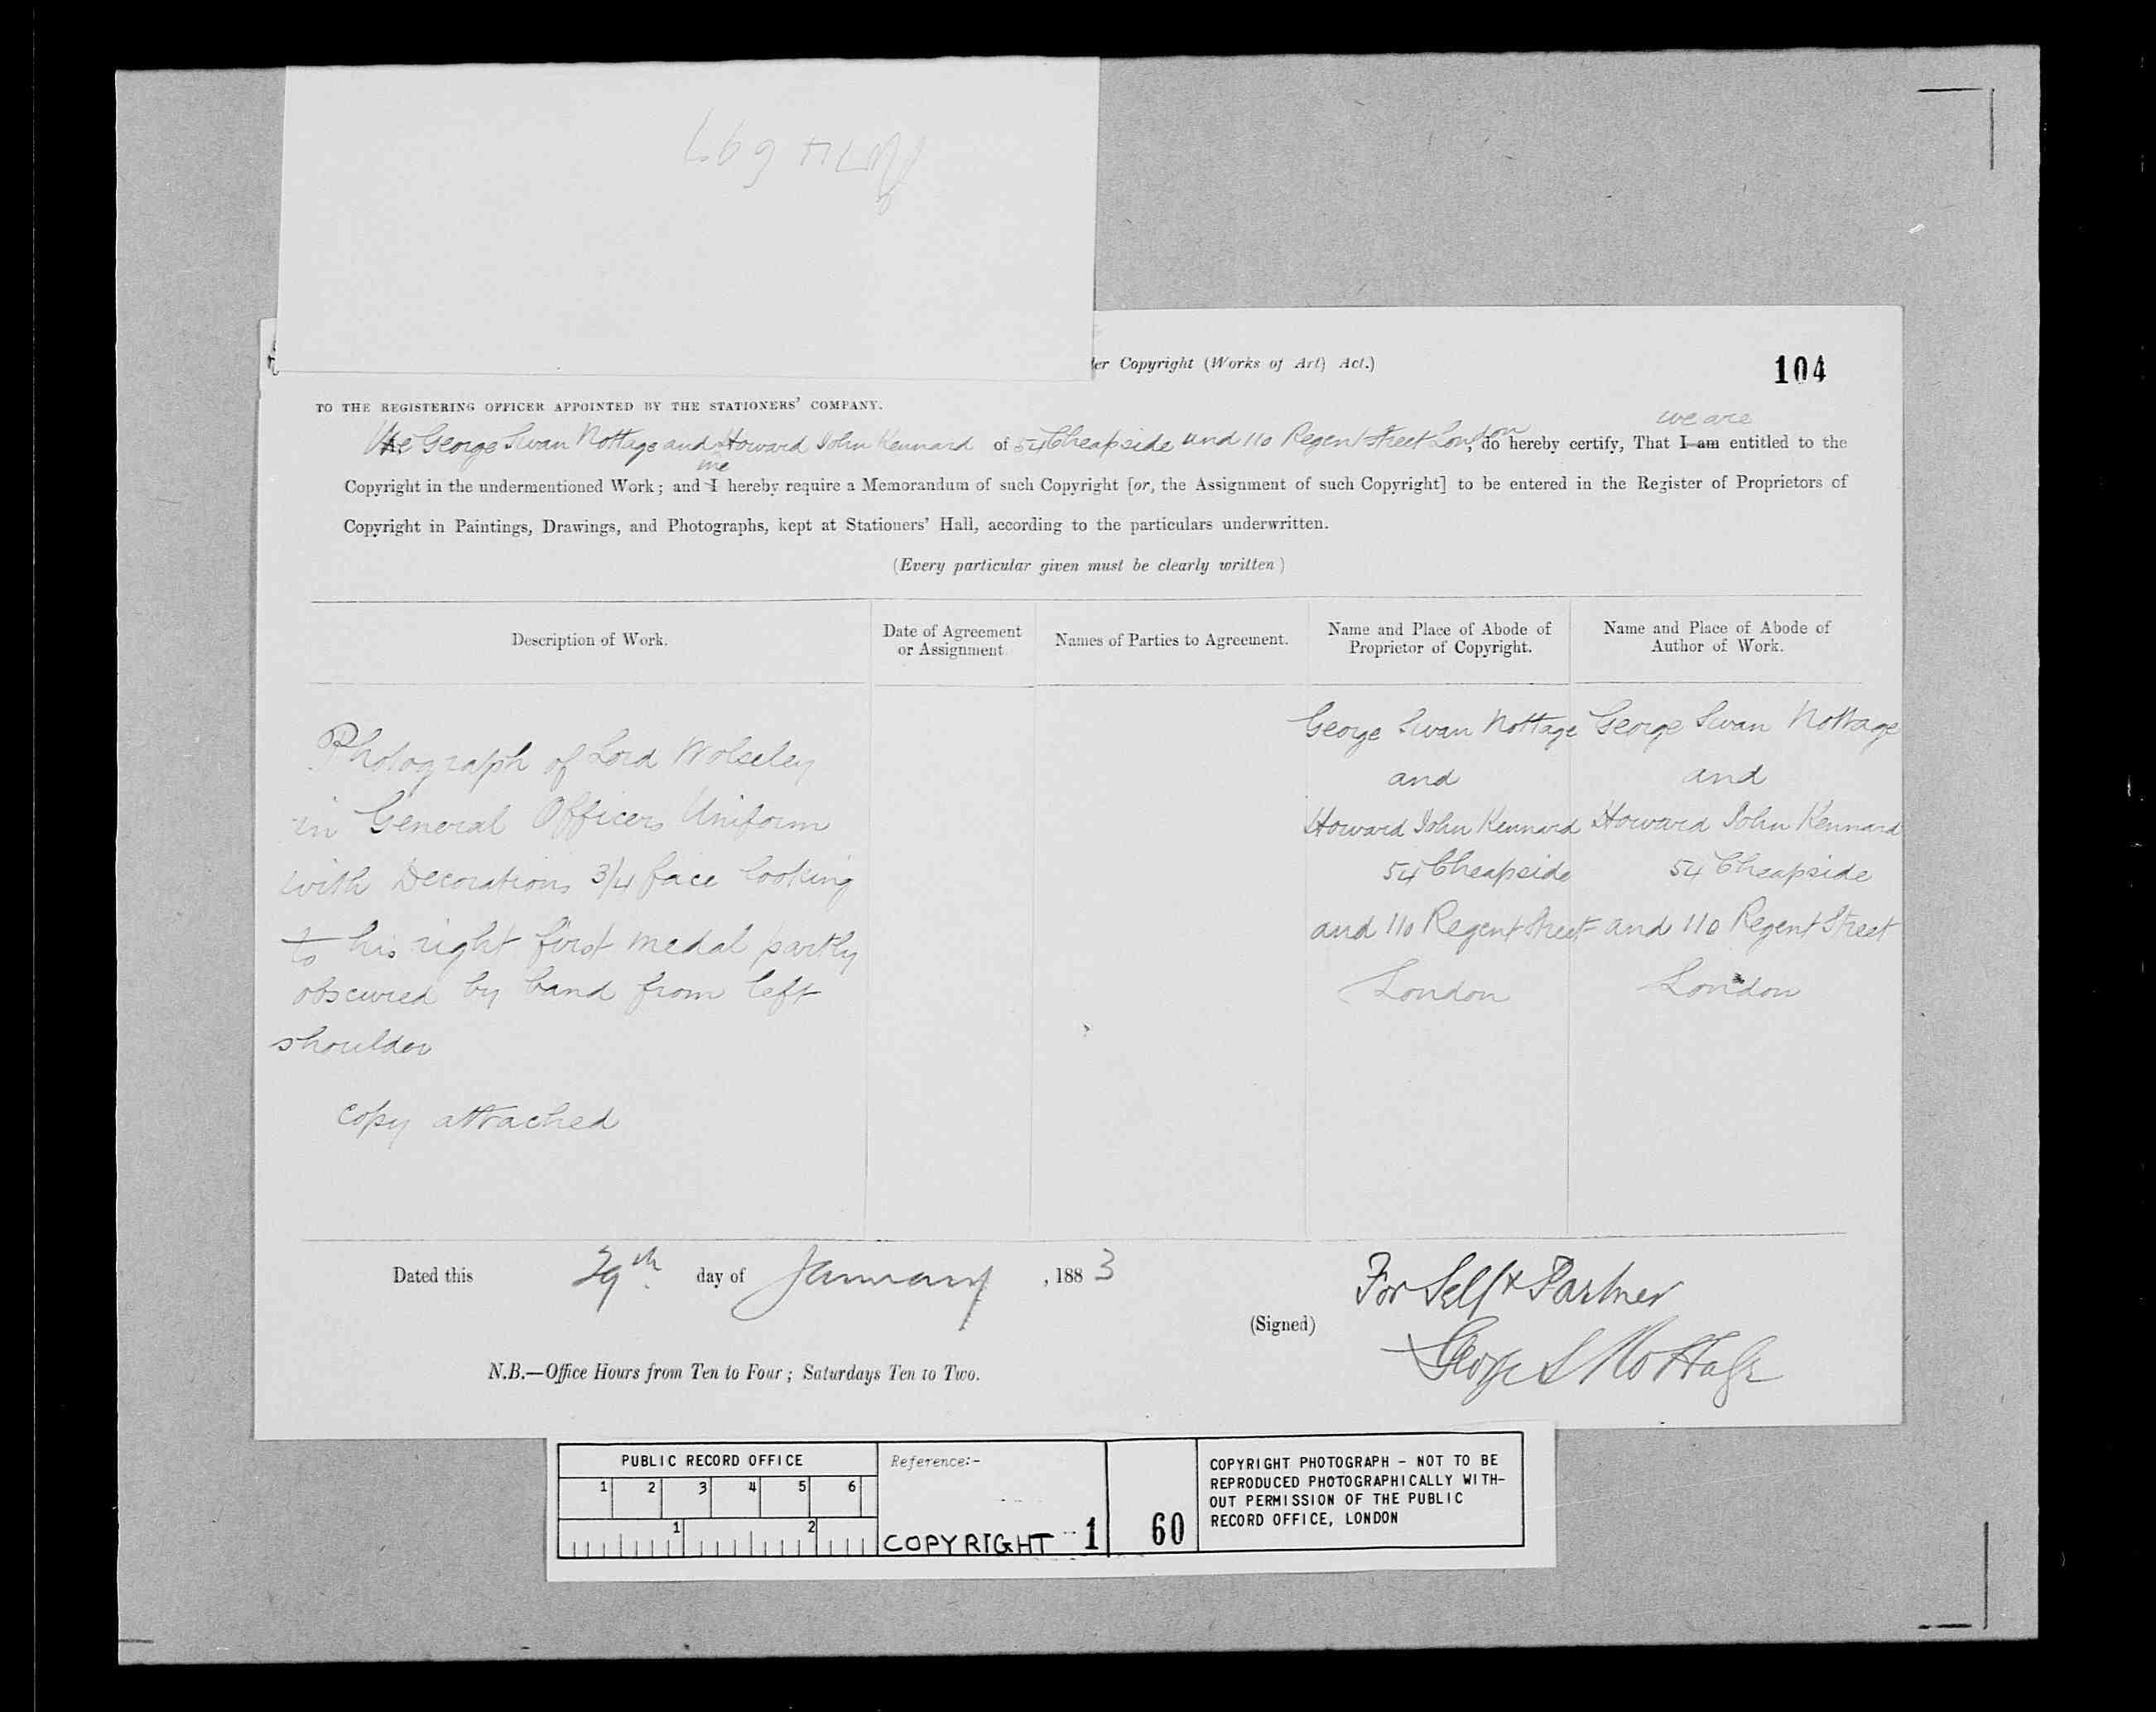 der Copyright (Works of Art) Act.)
104
TO THE REGISTERING OFFICER APPOINTED BY THE STATIONERS' COMPANY.
we are
We George Swan Nottage and Howard John Kennard of 54 Cheapside and 110 Regent Street London, do hereby certify, That I am entitled to the
we
Copyright in the undermentioned Work; and I hereby require a Memorandum of such Copyright [or, the Assignment of such Copyright] to be entered in the Register of Proprietors of
Copyright in Paintings, Drawings, and Photographs, kept at Stationers' Hall, according to the particulars underwritten.
(Every particular given must be clearly written)
Description of Work.
Date of Agreement
or Assignment
Names of Parties to Agreement.
Name and Place of Abode of
Proprietor of Copyright.
Name and Place of Abode of
Author of Work.
Photograph of Lord Wolseley
in General Officers Uniform
with Decorations 3/4 face looking
to his right first medal partly
obscured by band from left
shoulder
copy attached
George Swan Nottage
and
Howard John Kennard
54 Cheapside
and 110 Regent Street
London
George Swan Nottage
and
Howard John Kennard
54 Cheapside
and 110 Regent Street
London
Dated this 29th day of January, 1883
For Self & Partner
(Signed) George S Nottage
N.B.—Office Hours from Ten to Four; Saturdays Ten to Two.
PUBLIC RECORD OFFICE
1 2 3 4 5 6
1 2
Reference:-
COPYRIGHT 1
60
COPYRIGHT PHOTOGRAPH - NOT TO BE
REPRODUCED PHOTOGRAPHICALLY WITH-
OUT PERMISSION OF THE PUBLIC
RECORD OFFICE, LONDON